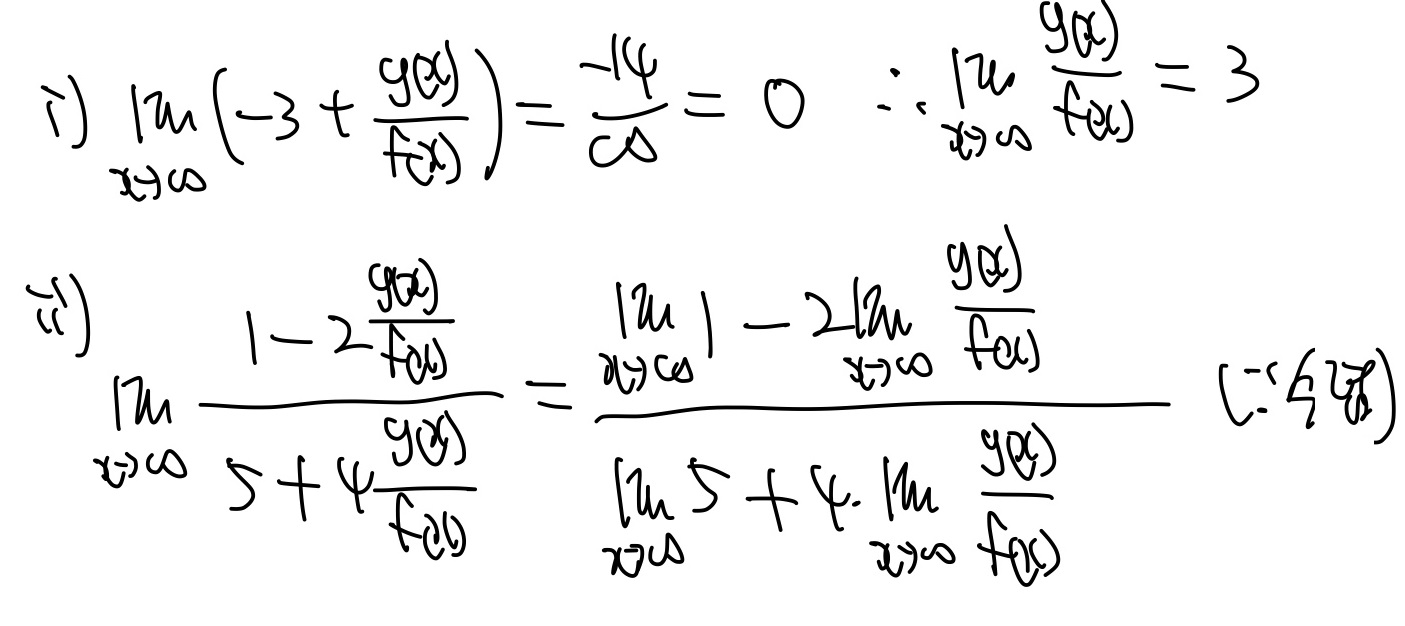 i) lim_{x→∞} (-3 + g(x)/f(x)) = -14/∞ = 0 ∴ lim_{x→∞} g(x)/f(x) = 3
ii) lim_{x→∞} (1 - 2 g(x)/f(x)) / (5 + 4 g(x)/f(x)) = (lim_{x→∞} 1 - 2 lim_{x→∞} g(x)/f(x)) / (lim_{x→∞} 5 + 4 · lim_{x→∞} g(x)/f(x)) (∵ 수렴)